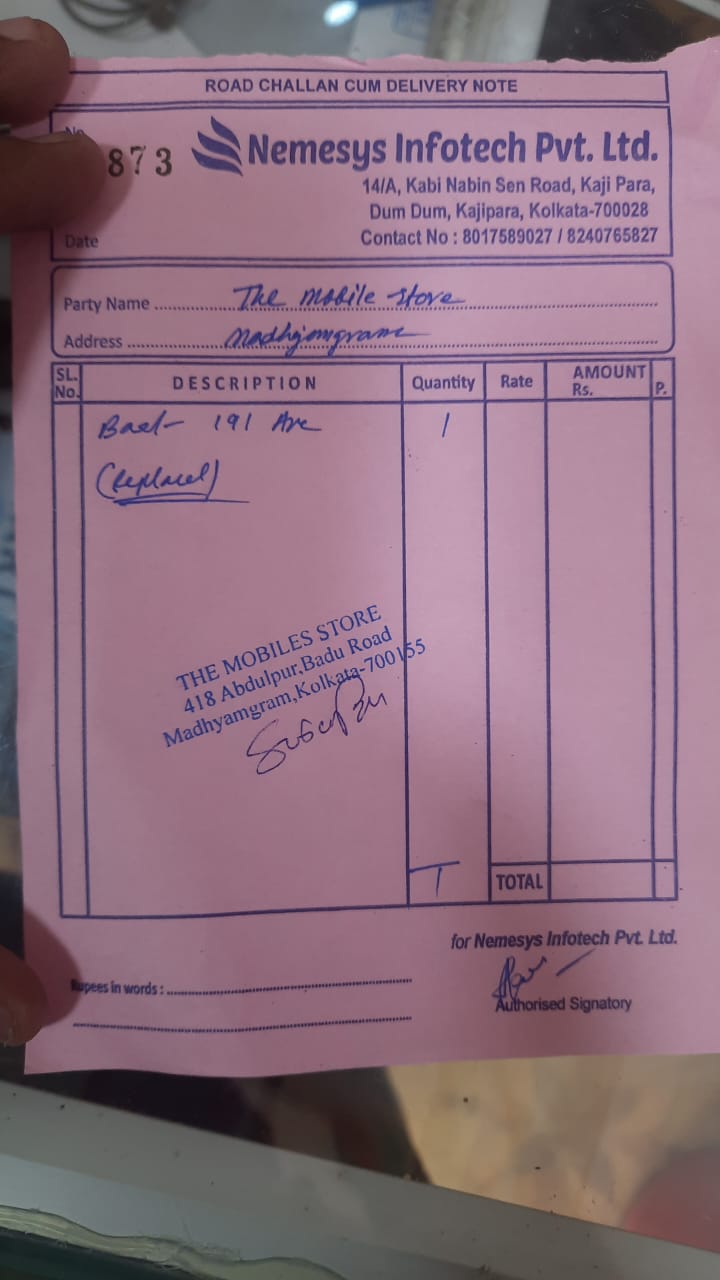 ROAD CHALLAN CUM DELIVERY NOTE
No.
873
Nemesys Infotech Pvt. Ltd.
14/A, Kabi Nabin Sen Road, Kaji Para,
Dum Dum, Kajipara, Kolkata-700028
Date
Contact No : 8017589027 / 8240765827
Party Name The Mobile Store
Address Madhyamgram
SL. No. DESCRIPTION Quantity Rate AMOUNT Rs. P.
191 1
THE MOBILES STORE
418 Abdulpur,Badu Road
Madhyamgram,Kolkata-700155
TOTAL
for Nemesys Infotech Pvt. Ltd.
Rupees in words :
Authorised Signatory